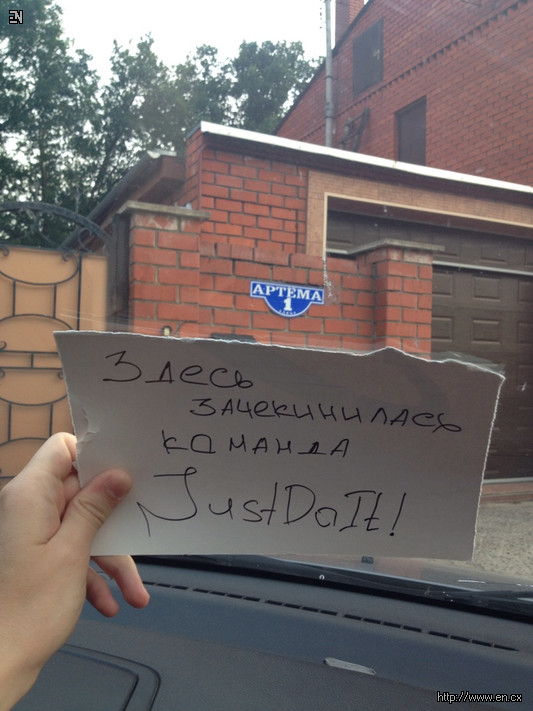 EN
АРТЁМА
1
Здесь
зачекинилась
команда
JustDoIt!
http://www.en.cx